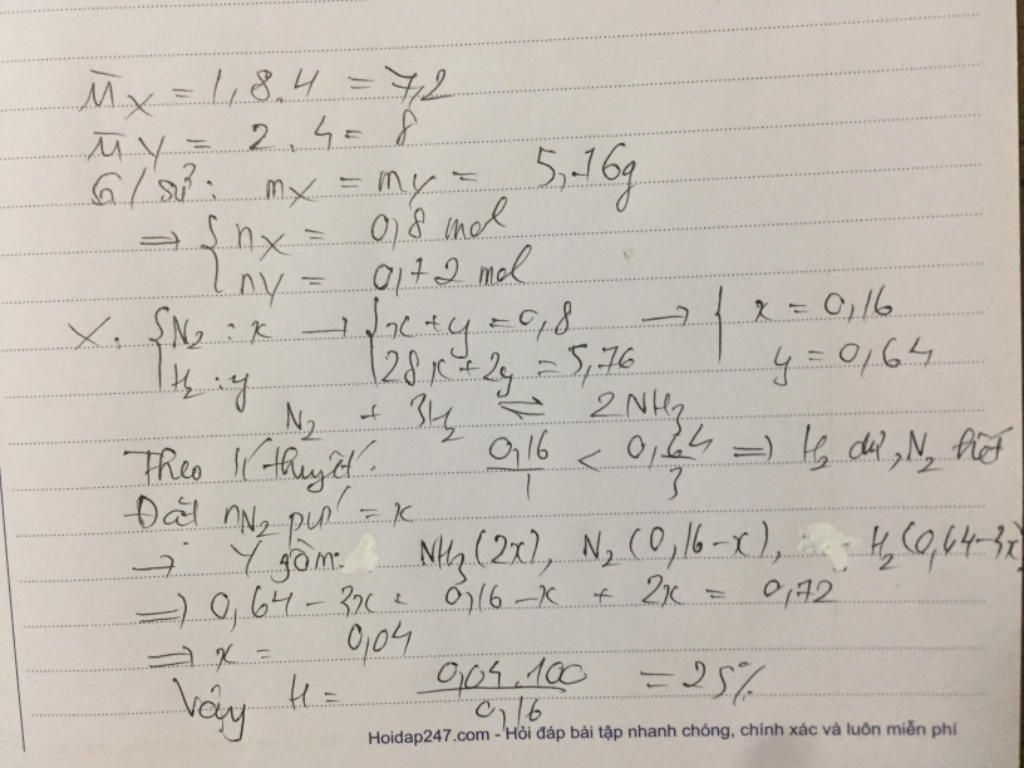 M̅x = 1,8.4 = 7,2
M̅y = 2.4 = 8
G/sử: mx = my = 5,76g
⇒ { nx = 0,8 mol
ny = 0,72 mol
X: { N₂ : x → { x + y = 0,8 → { x = 0,16
H₂ : y 28x + 2y = 5,76 y = 0,64
N₂ + 3H₂ ⇌ 2NH₃
Theo lí thuyết: 0,16/1 < 0,64/3 ⇒ H₂ dư, N₂ hết
Đặt nN₂ pư = x
→ Y gồm: NH₃(2x), N₂(0,16-x), H₂(0,64-3x)
⇒ 0,64 - 3x + 0,16 - x + 2x = 0,72
⇒ x = 0,04
Vậy H = 0,04.100/0,16 = 25%
Hoidap247.com - Hỏi đáp bài tập nhanh chóng, chính xác và luôn miễn phí